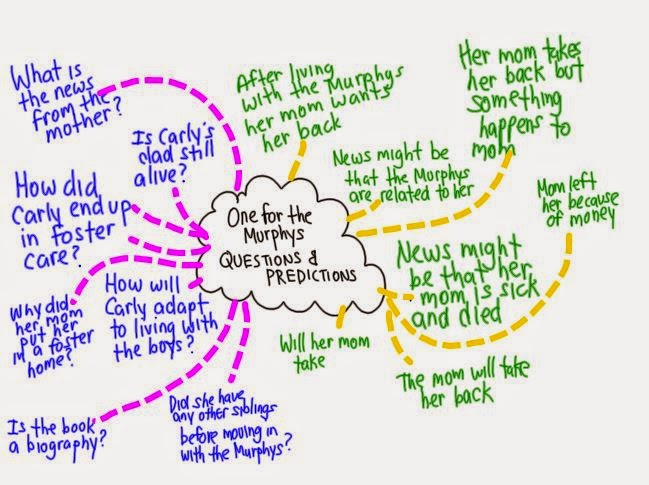 What is
the news
from the
mother?
Is Carly's
dad still
alive?
How did
Carly end up
in foster
care?
Why did
her mom
put her
in a foster
home?
How will
Carly adapt
to living with
the boys?
Is the book
a biography?
Did she have
any other siblings
before moving in
with the Murphys?
One for the
Murphys
QUESTIONS &
PREDICTIONS
After living
with the Murphys
her mom wants
her back
Her mom takes
her back but
something
happens to
mom
News might be
that the Murphys
are related to her
Mom left
her because
of money
News might
be that her
mom is sick
and died
Will her mom
take
The mom will take
her back